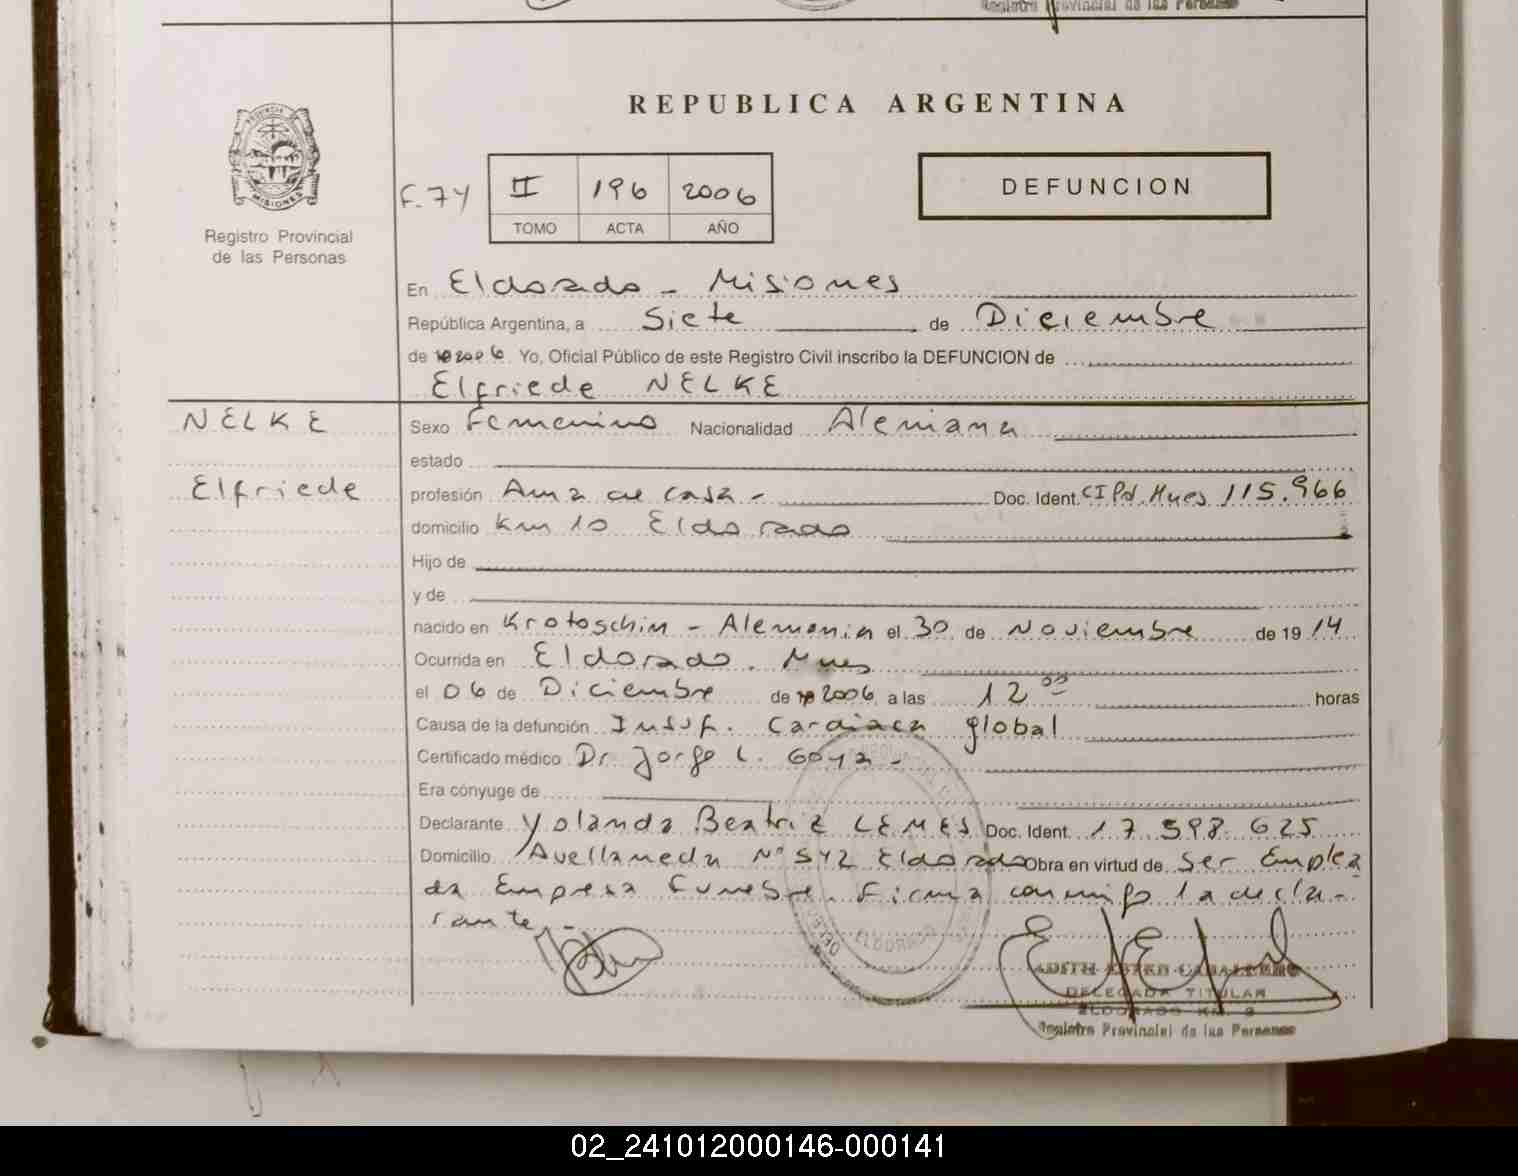 Registro Provincial de las Personas
REPUBLICA ARGENTINA
PROVINCIA DE
MISIONES
Registro Provincial
de las Personas
F. 74
II 196 2006
TOMO ACTA AÑO
DEFUNCION
En Eldorado - Misiones
República Argentina, a Siete de Diciembre
de 2006 Yo, Oficial Público de este Registro Civil inscribo la DEFUNCION de
Elfriede NELKE
NELKE
Elfriede
Sexo Femenino Nacionalidad Alemana
estado
profesión Ama de casa - Doc. Ident. CI Pol. Mnes 115.966
domicilio Km 10 Eldorado
Hijo de
y de
nacido en Krotoschin - Alemania el 30 de Noviembre de 1914
Ocurrida en Eldorado. Mnes
el 06 de Diciembre de 2006 a las 12 00 horas
Causa de la defunción Insuf. Cardiaca global
Certificado médico Dr. Jorge L. Goya -
Era cónyuge de
Declarante Yolanda Beatriz LEMES Doc. Ident. 17.598.625
Domicilio Avellaneda Nº 542 Eldorado Obra en virtud de Ser Emplea
da Empresa Funebre. Firma conmigo la decla-
rante. -
ELDORADO
DELEGADA TITULAR
ELDORADO KM. 9
Registro Provincial de las Personas
02_241012000146-000141